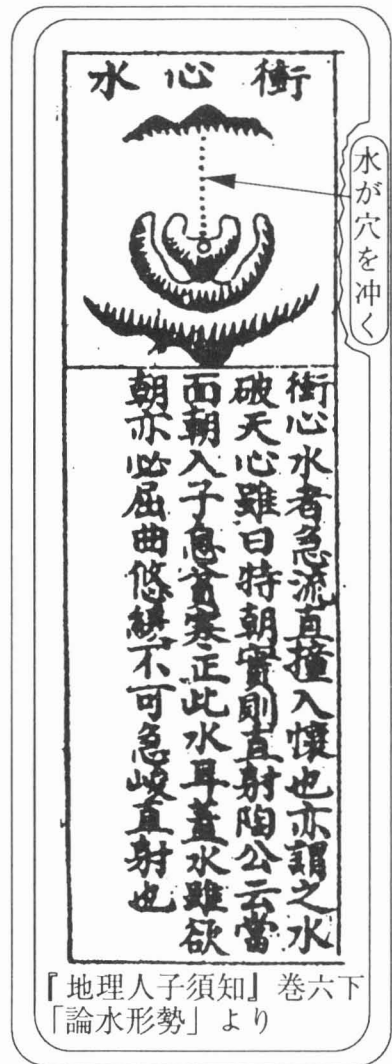 衝心水
水が穴を冲く
衝心水者急流直撞入懷也亦謂之水
破天心雖曰特朝實則直射陶公云當
面朝入子息貧寒正此水耳蓋水雖欲
朝亦必屈曲悠緩不可急峻直射也
『地理人子須知』巻六下
「論水形勢」より